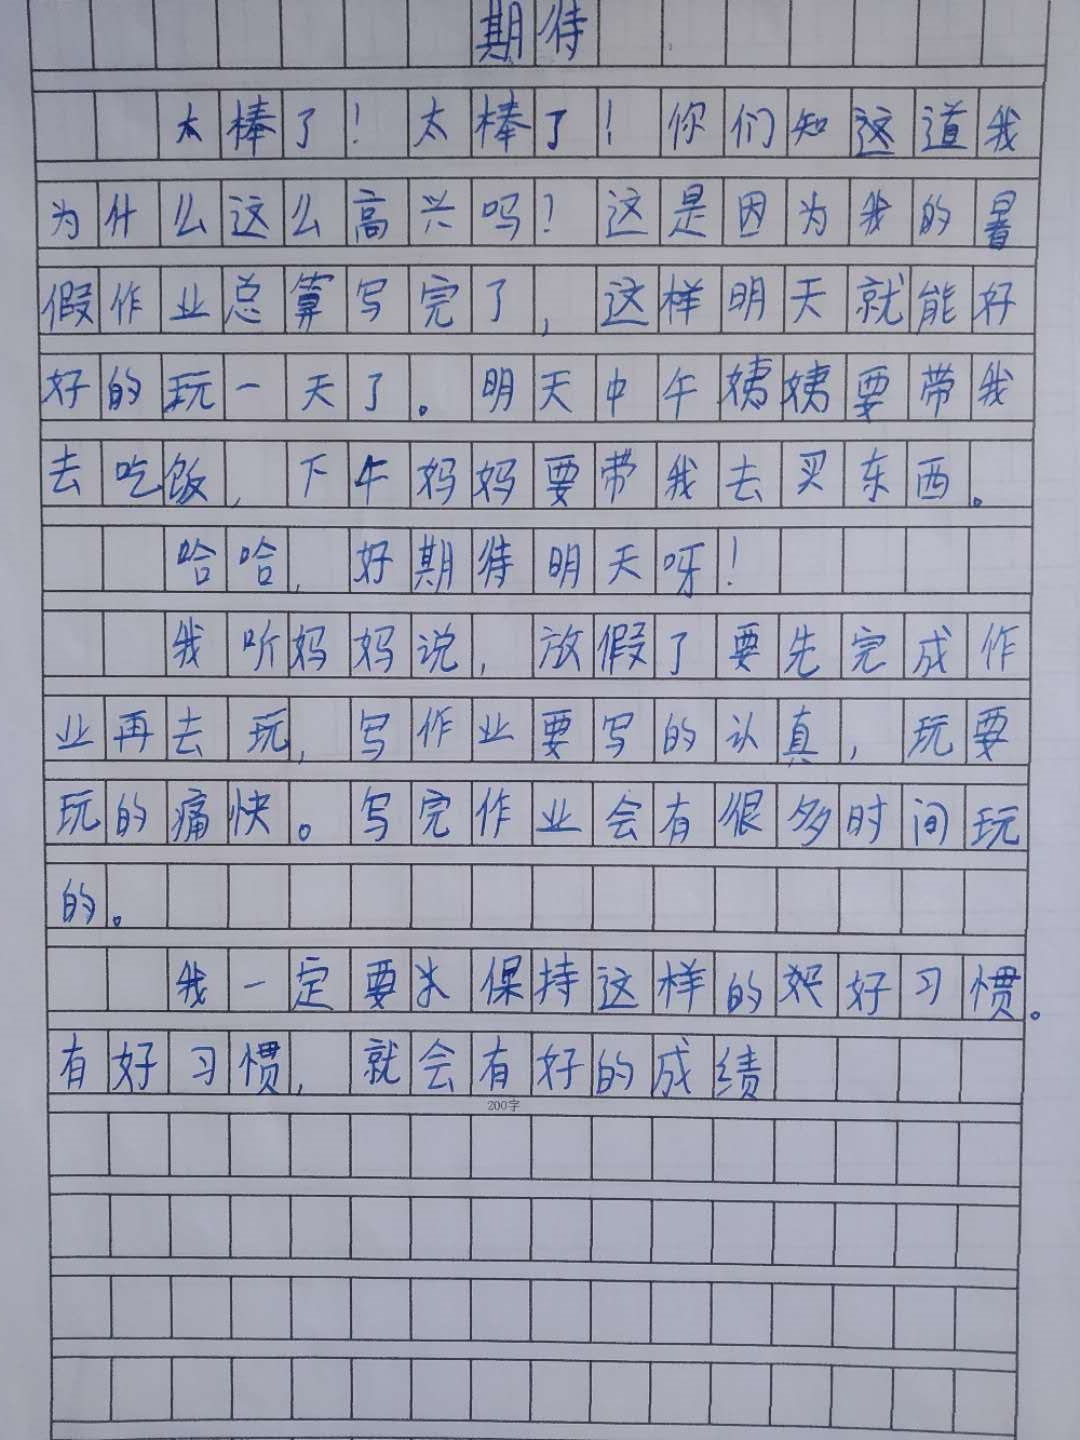 期待
太棒了！太棒了！你们知这道我
为什么这么高兴吗？这是因为我的暑
假作业总算写完了，这样明天就能好
好的玩一天了。明天中午姨姨要带我
去吃饭，下午妈妈要带我去买东西。
哈哈，好期待明天呀！
我听妈妈说，放假了要先完成作
业再去玩，写作业要写的认真，玩要
玩的痛快。写完作业会有很多时间玩
的。
我一定要保持这样的好习惯。
有好习惯，就会有好的成绩
200字